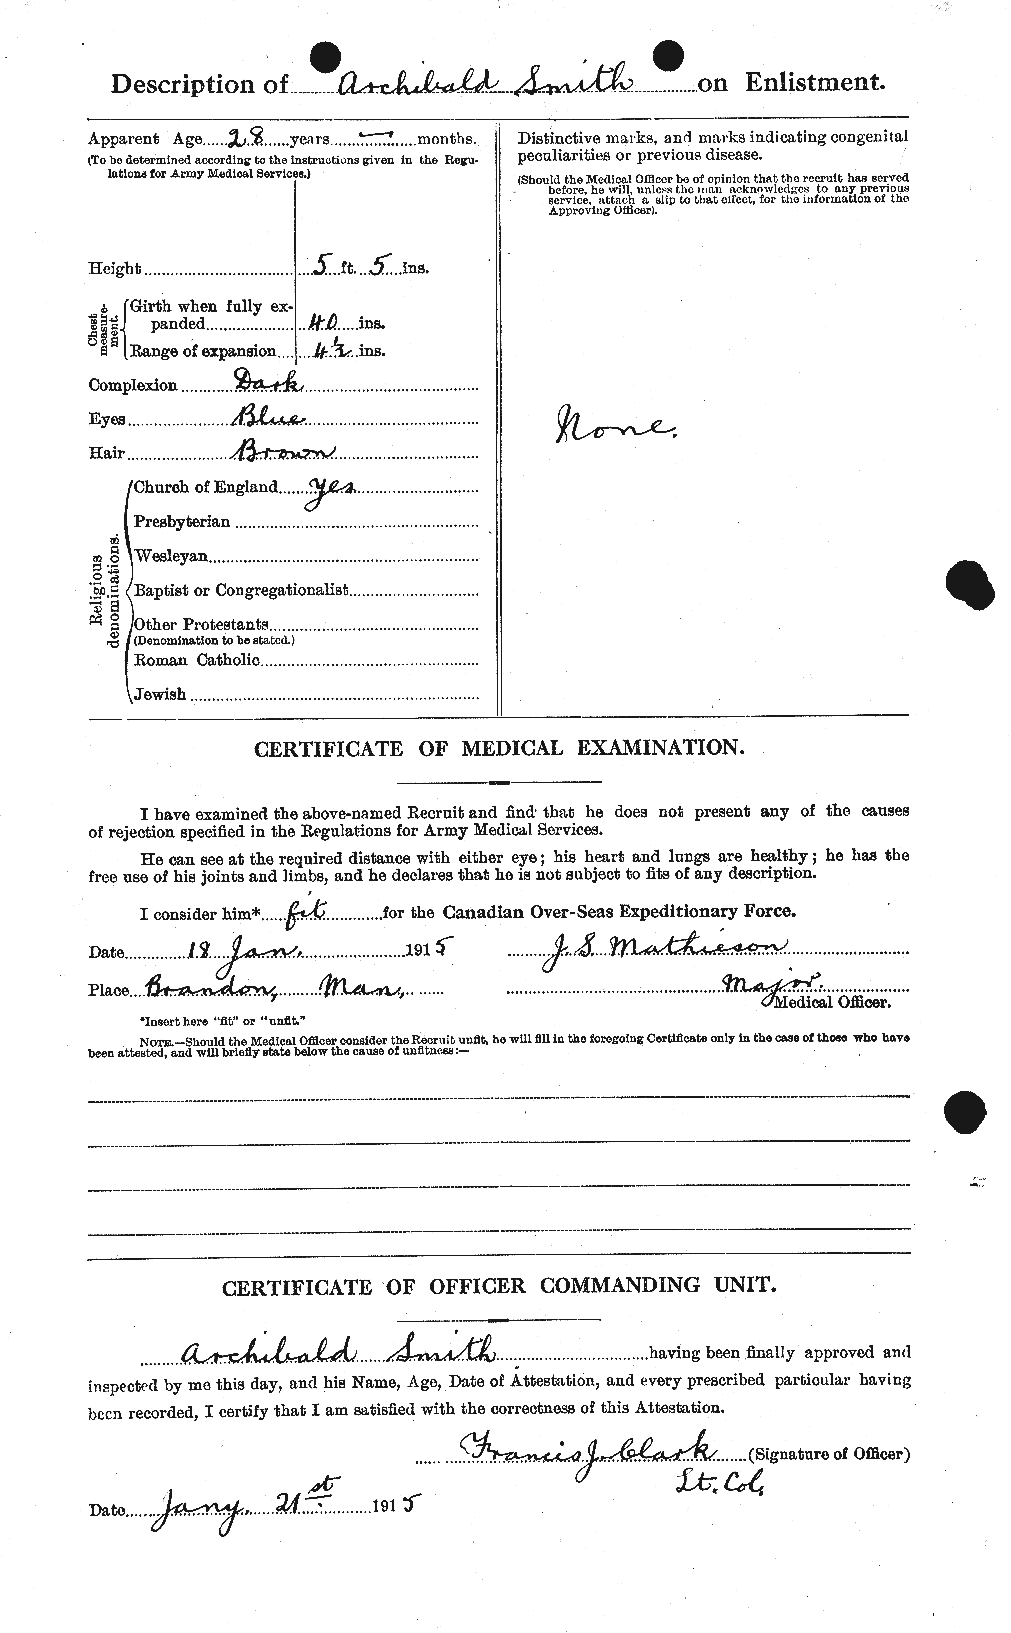 Description of Archibald Smith on Enlistment.
Apparent Age 28 years — months.
(To be determined according to the instructions given in the Regu-
lations for Army Medical Services.)
Height 5 ft. 5 ins.
Chest measure-ment.
Girth when fully ex-
panded 40 ins.
Range of expansion 4½ ins.
Complexion Dark
Eyes Blue
Hair Brown
Religious denominations.
Church of England Yes
Presbyterian
Wesleyan
Baptist or Congregationalist
Other Protestants
(Denomination to be stated.)
Roman Catholic
Jewish
Distinctive marks, and marks indicating congenital
peculiarities or previous disease.
(Should the Medical Officer be of opinion that the recruit has served
before, he will, unless the man acknowledges to any previous
service, attach a slip to that effect, for the information of the
Approving Officer).
None.
CERTIFICATE OF MEDICAL EXAMINATION.
I have examined the above-named Recruit and find that he does not present any of the causes
of rejection specified in the Regulations for Army Medical Services.
He can see at the required distance with either eye; his heart and lungs are healthy; he has the
free use of his joints and limbs, and he declares that he is not subject to fits of any description.
I consider him* fit for the Canadian Over-Seas Expeditionary Force.
Date 18 Jan. 1915 J. S. Mathieson
Place Brandon, Man., Major.
Medical Officer.
*Insert here "fit" or "unfit."
NOTE.—Should the Medical Officer consider the Recruit unfit, he will fill in the foregoing Certificate only in the case of those who have
been attested, and will briefly state below the cause of unfitness:—
CERTIFICATE OF OFFICER COMMANDING UNIT.
Archibald Smith having been finally approved and
inspected by me this day, and his Name, Age, Date of Attestation, and every prescribed particular having
been recorded, I certify that I am satisfied with the correctness of this Attestation.
Francis J. Clark (Signature of Officer)
Lt. Col.
Date Jany. 21st 1915